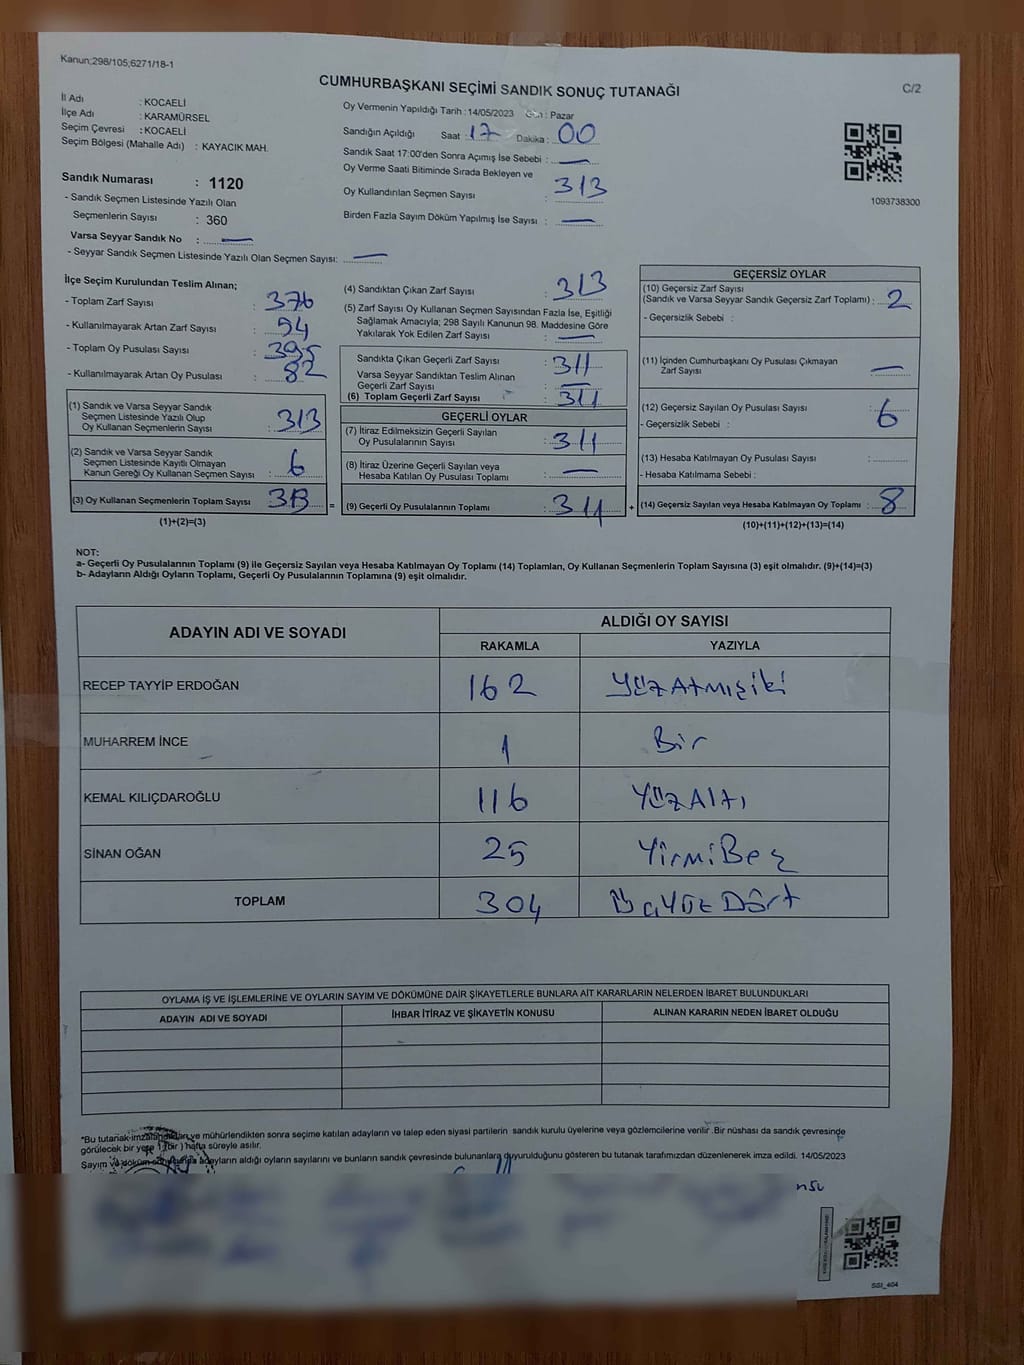 Kanun;298/105;6271/18-1
CUMHURBAŞKANI SEÇİMİ SANDIK SONUÇ TUTANAĞI
C/2
İl Adı : KOCAELİ
İlçe Adı : KARAMÜRSEL
Seçim Çevresi : KOCAELİ
Seçim Bölgesi (Mahalle Adı) : KAYACIK MAH.
Sandık Numarası : 1120
- Sandık Seçmen Listesinde Yazılı Olan
Seçmenlerin Sayısı : 360
Varsa Seyyar Sandık No : —
- Seyyar Sandık Seçmen Listesinde Yazılı Olan Seçmen Sayısı: —
Oy Vermenin Yapıldığı Tarih : 14/05/2023 Gün : Pazar
Sandığın Açıldığı Saat : 17 Dakika : 00
Sandık Saat 17:00'den Sonra Açımış İse Sebebi : —
Oy Verme Saati Bitiminde Sırada Bekleyen ve
Oy Kullandırılan Seçmen Sayısı : 313
Birden Fazla Sayım Döküm Yapılmış İse Sayısı : —
1093738300
İlçe Seçim Kurulundan Teslim Alınan;
- Toplam Zarf Sayısı : 376
- Kullanılmayarak Artan Zarf Sayısı : 94
- Toplam Oy Pusulası Sayısı : 395
- Kullanılmayarak Artan Oy Pusulası : 82
(1) Sandık ve Varsa Seyyar Sandık
Seçmen Listesinde Yazılı Olup
Oy Kullanan Seçmenlerin Sayısı : 313
(2) Sandık ve Varsa Seyyar Sandık
Seçmen Listesinde Kayıtlı Olmayan
Kanun Gereği Oy Kullanan Seçmen Sayısı : 6
(3) Oy Kullanan Seçmenlerin Toplam Sayısı : 313 =
(1)+(2)=(3)
(4) Sandıktan Çıkan Zarf Sayısı : 313
(5) Zarf Sayısı Oy Kullanan Seçmen Sayısından Fazla İse, Eşitliği
Sağlamak Amacıyla; 298 Sayılı Kanunun 98. Maddesine Göre
Yakılarak Yok Edilen Zarf Sayısı : —
Sandıkta Çıkan Geçerli Zarf Sayısı : 311
Varsa Seyyar Sandıktan Teslim Alınan
Geçerli Zarf Sayısı : —
(6) Toplam Geçerli Zarf Sayısı : 311
GEÇERLİ OYLAR
(7) İtiraz Edilmeksizin Geçerli Sayılan
Oy Pusulalarının Sayısı : 311
(8) İtiraz Üzerine Geçerli Sayılan veya
Hesaba Katılan Oy Pusulası Toplamı : —
(9) Geçerli Oy Pusulalarının Toplamı : 311 +
GEÇERSİZ OYLAR
(10) Geçersiz Zarf Sayısı
(Sandık ve Varsa Seyyar Sandık Geçersiz Zarf Toplamı) : 2
- Geçersizlik Sebebi :
(11) İçinden Cumhurbaşkanı Oy Pusulası Çıkmayan
Zarf Sayısı : —
(12) Geçersiz Sayılan Oy Pusulası Sayısı : 6
- Geçersizlik Sebebi :
(13) Hesaba Katılmayan Oy Pusulası Sayısı :
- Hesaba Katılmama Sebebi :
(14) Geçersiz Sayılan veya Hesaba Katılmayan Oy Toplamı : 8
(10)+(11)+(12)+(13)=(14)
NOT:
a- Geçerli Oy Pusulalarının Toplamı (9) ile Geçersiz Sayılan veya Hesaba Katılmayan Oy Toplamı (14) Toplamları, Oy Kullanan Seçmenlerin Toplam Sayısına (3) eşit olmalıdır. (9)+(14)=(3)
b- Adayların Aldığı Oyların Toplamı, Geçerli Oy Pusulalarının Toplamına (9) eşit olmalıdır.
ADAYIN ADI VE SOYADI
ALDIĞI OY SAYISI
RAKAMLA YAZIYLA
RECEP TAYYİP ERDOĞAN 162 YüzAtmışiki
MUHARREM İNCE 1 Bir
KEMAL KILIÇDAROĞLU 116 YüzAltı
SİNAN OĞAN 25 YirmiBeş
TOPLAM 304 ÜçYüzDört
OYLAMA İŞ VE İŞLEMLERİNE VE OYLARIN SAYIM VE DÖKÜMÜNE DAİR ŞİKAYETLERLE BUNLARA AİT KARARLARIN NELERDEN İBARET BULUNDUKLARI
ADAYIN ADI VE SOYADI İHBAR İTİRAZ VE ŞİKAYETİN KONUSU ALINAN KARARIN NEDEN İBARET OLDUĞU
*Bu tutanak imzalandıktan ve mühürlendikten sonra seçime katılan adayların ve talep eden siyasi partilerin sandık kurulu üyelerine veya gözlemcilerine verilir. Bir nüshası da sandık çevresinde
görülecek bir yere 1 (bir) hafta süreyle asılır.
Sayım ve döküm adayların aldığı oyların sayılarını ve bunların sandık çevresinde bulunanlara duyurulduğunu gösteren bu tutanak tarafımızdan düzenlenerek imza edildi. 14/05/2023
SSI_404